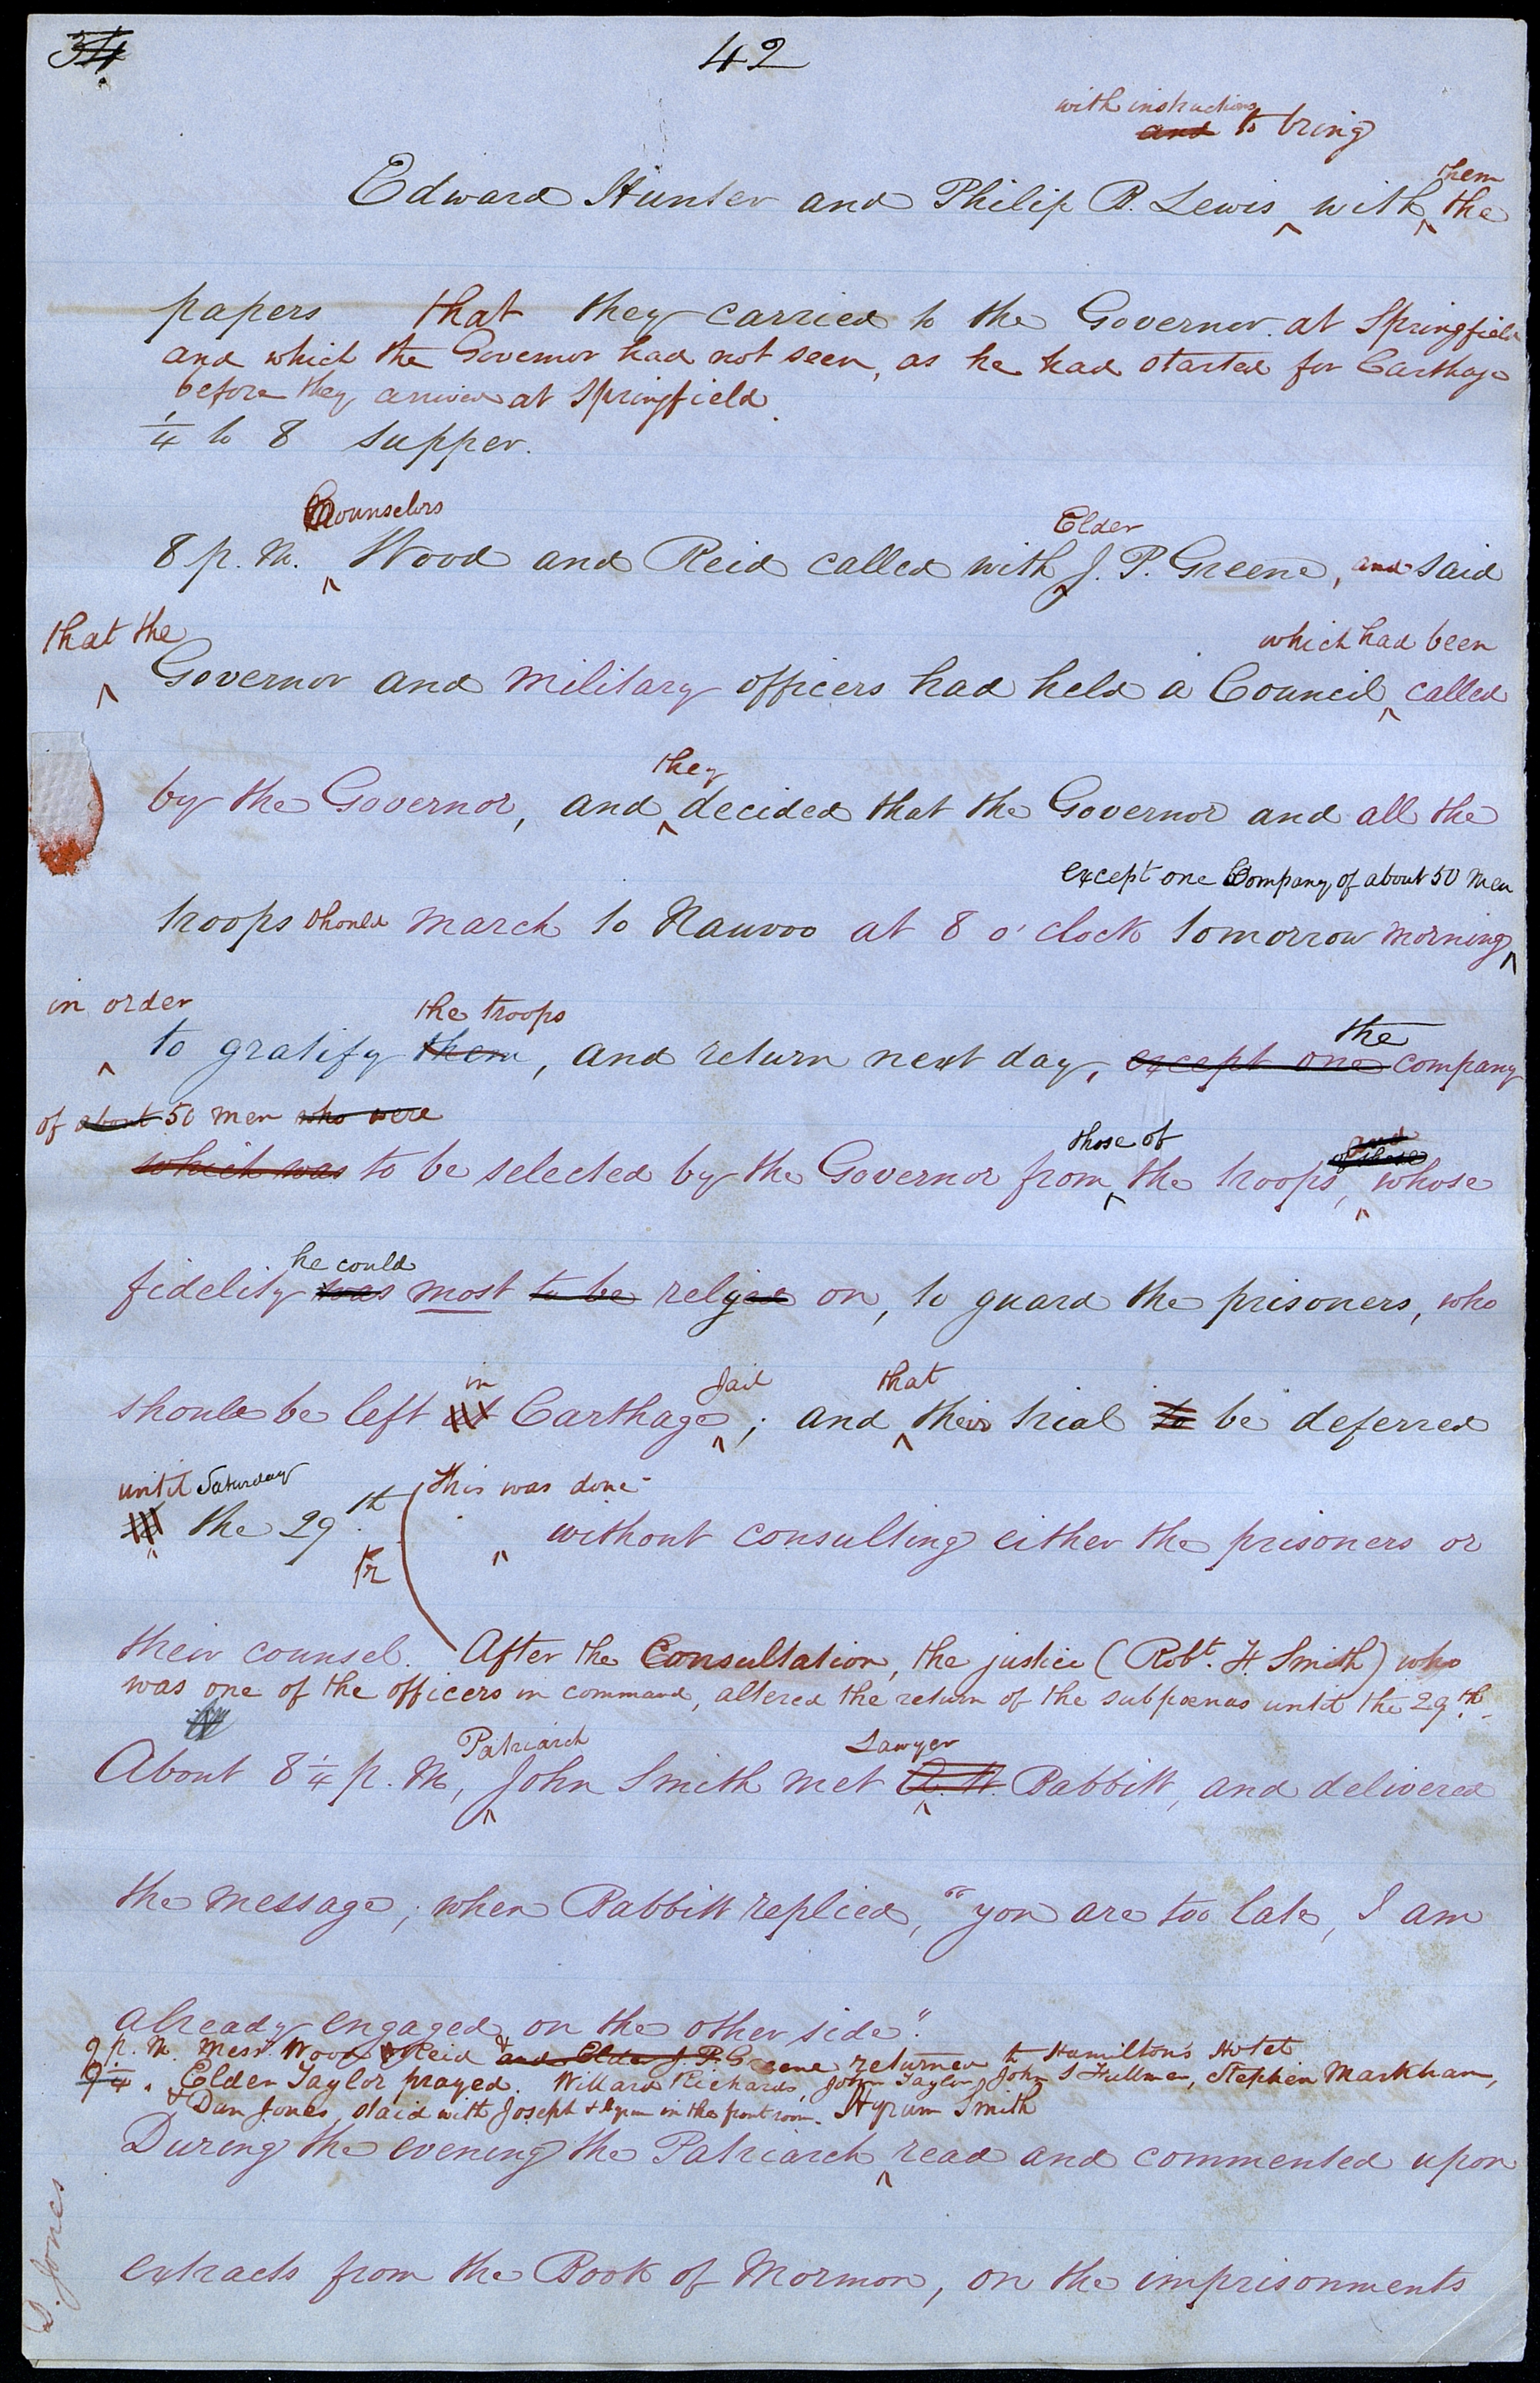 34
42
with instructions
and to bring
them
Edward Hunter and Philip B. Lewis ^ with ^ the
papers that they carried to the Governor. at Springfield
and which the Governor had not seen, as he had started for Carthage
before they arrived at Springfield.
1/4 to 8 supper.
Counselors
Elder
8 p. m. ^ Wood and Reid called with J. P. Greene, and said
that the
which had been
^ Governor and military officers had held a Council ^ called
they
by the Governor, and ^ decided that the Governor and all the
except one Company of about 50 men
troops should march to Nauvoo at 8 o'clock tomorrow morning ^
in order
the troops
the
^ to gratify them, and return next day, except one company
of about 50 men who were
those of
and
of those
which was to be selected by the Governor from ^ the troops, ^ whose
he could
fidelity was most to be relyed on, to guard the prisoners, who
in
Jail
that
should be left at Carthage ^; and ^ their trial to be deferred
until Saturday
this was done
the 29th. ^ without consulting either the prisoners or
their counsel. After the Consultation, the justice (Robt. F. Smith) who
was one of the officers in command, altered the return of the subpoenas until the 29th.
Patriarch
Lawyer
About 8 1/4 p. m, ^ John Smith met A. W. Babbitt, and delivered
the message; when Babbitt replied, "you are too late, I am
already engaged on the other side".
9 p. m. Messrs. Wood & Reid and Elder J. P. Greene returned to Hamilton's Hotel
9 1/4. Elder Taylor prayed. Willard Richards, John Taylor, John S Fullmer, Stephen Markham,
& Dan Jones, staid with Joseph & Hyrum in the front room.
Hyrum Smith
During the evening the Patriarch ^ read and commented upon
extracts from the Book of Mormon, on the imprisonments
D. Jones